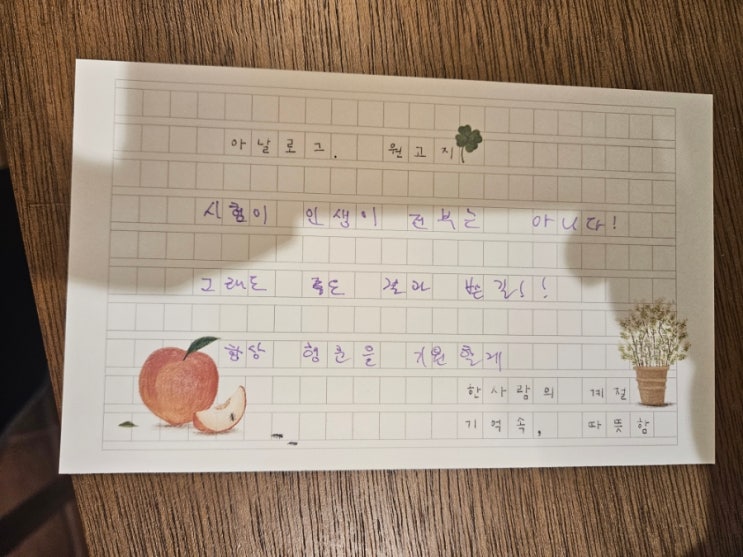 아날로그. 원고지
시험이 인생이 전부는 아니다!
그래도 좋은 결과 받길!!
항상 행운을 기원할게
한사람의 계절
기억속, 따뜻함